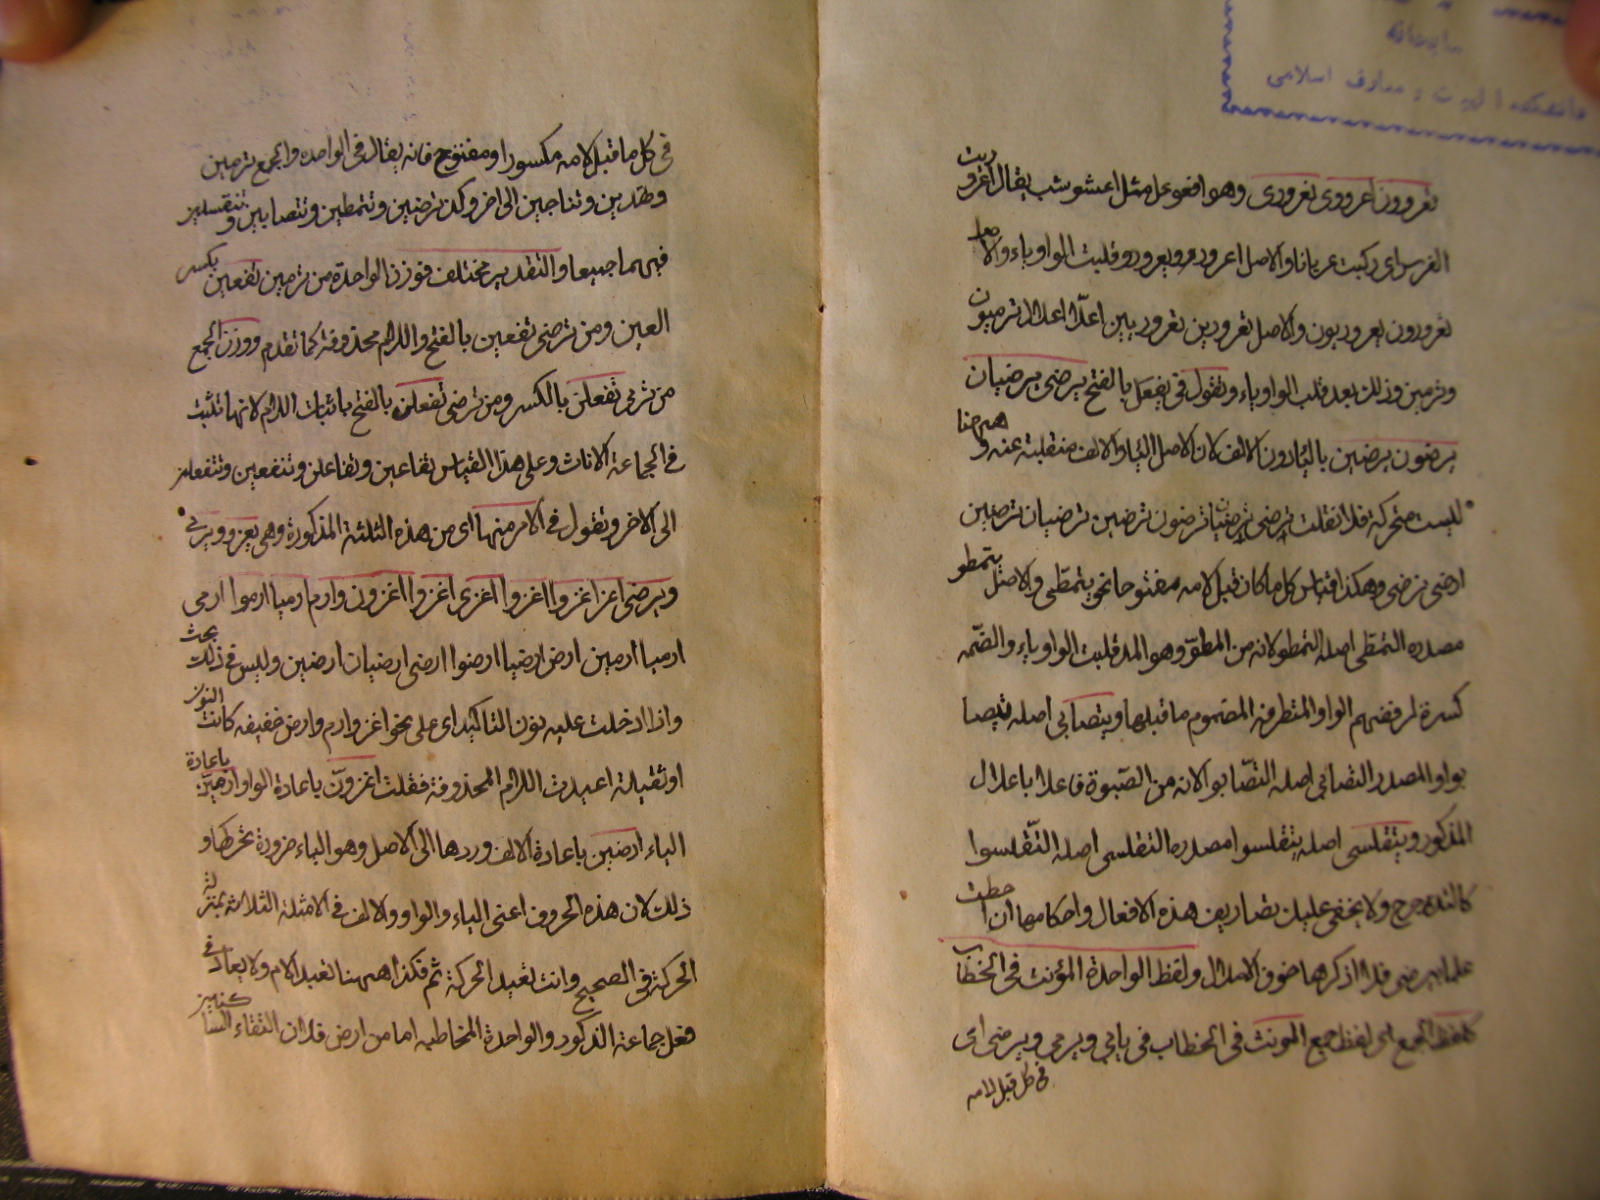 دانشکده الهیات و معارف اسلامی
تعرورون اعرورى تعرورى وهو افعوعل مثل اعشوشب يقال اعروريت
الفرس اى ركبت عريانا والاصل اعرورو يعرورو قلبت الواو ياء والاصل
تعرورون يعروريون والاصل تعرورين تعروريين اعلّا اعلال ترميون
وترمين وذلك بعد قلب الواو ياء وتقول فى يفعل بالفتح يرضى يرضيان
يرضون يرضين بالياء دون الالف لان الاصل الياء والالف منقلبة عنه وههنا
ليست متحركة فلا تقلب ترضى ترضيان ترضون ترضين ترضيان ترضين
ارضى نرضى وهكذا قياس كل ما كان قبل لامه مفتوحا نحو يتمطى والاصل يتمطو
مصدره التمطى اصله التمطو لانه من المطو وهو المد قلبت الواو ياء والضمه
كسرة لرفضهم الواو المتطرفه المضموم ما قبلها ويتصابى اصله يتصا
بو والمصدر التصابى اصله التصابو لانه من الصبوة فاعلا باعلال
المذكور ويتقلسى اصله يتقلسو مصدره التقلسى اصله التقلسو
كالتدحرج ولا يخفى عليك تصاريف هذه الافعال واحكامها ان احطت
علما بيرضى فلا اذكرها خوف الاملال ولفظ الواحدة المؤنث فى الخطاب
كلفظ الجمع اى لفظ جمع المونث فى الخطاب فى يابى ويرمى ويرضى اى
فى كل قبل لامه
فى كل ما قبل لامه مكسور او مفتوح فانه يقال فى الواحده والجمع ترمين
وتهدين وتناجين الى اخر وكذ ترضين وتتمطين وتتصابين وتتقلسين
فيهما جميعا والتقدير مختلف فوزن الواحدة من ترمين تفعين بكسر
العين ومن ترضى تفعين بالفتح واللام محذوفة كما تقدم ووزن الجمع
من ترمى تفعلن بالكسر ومن ترضى تفعلن بالفتح باثبات اللام لانها تثبت
فى الجماعة الاناث وعلى هذا القياس تفاعين وتفاعلن وتتفعين وتتفعلن
الى الاخر وتقول فى الامر منها اى من هذه الثلثة المذكورة وهى يغزو ويرمى
ويرضى اغز اغزوا اغزوا اغزى اغزوا اغزون وارم ارميا ارموا ارمى
ارميا ارمين ارض ارضيا ارضوا ارضى ارضيان ارضين وليس فى ذلك بحث
واذا ادخلت عليه نون التاكيد اى على نحو اغز وارم وارض خفيفه كانت النون
او ثقيلة اعيدت اللام المحذوفة فقلت اغزون باعادة الواو ارمين باعادة
الياء ارضين باعادة الالف وردها الى الاصل وهو الياء ضرورة تحركها و
ذلك لان هذه الحروف اعنى الياء والواو والالف فى الامثلة الثلاثة بمنزلة
الحركة فى الصحيح وانت تعيد الحركة ثم فكذا ههنا تعيد اللام ولا يعاد فى
فعل جماعة الذكور والواحدة المخاطبه اما من ارض فلان التقاء الساكنين